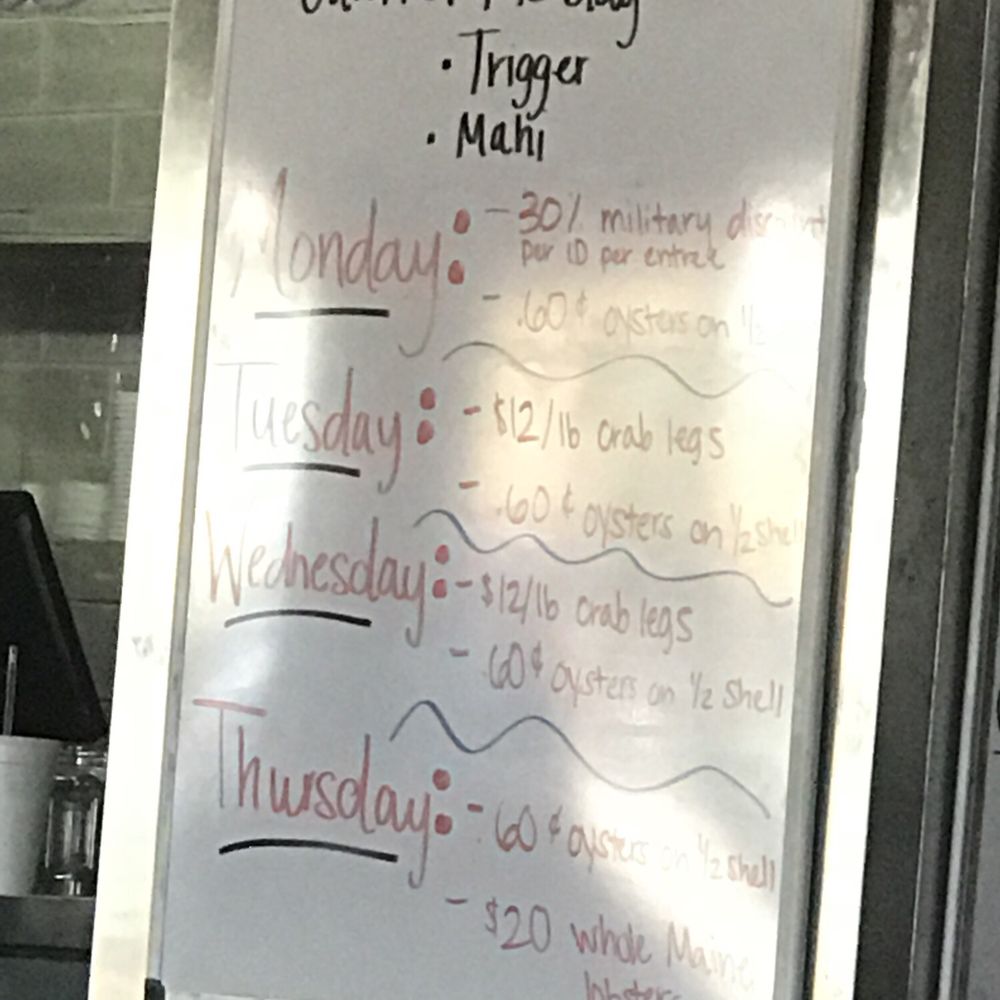 • Trigger
• Mahi
Monday: - 30% military discount
per ID per entree
- .60¢ oysters on 1/2
Tuesday: - $12/lb crab legs
- .60¢ oysters on 1/2 shell
Wednesday: - $12/lb crab legs
- .60¢ oysters on 1/2 shell
Thursday: - .60¢ oysters on 1/2 shell
- $20 whole Maine
lobsters